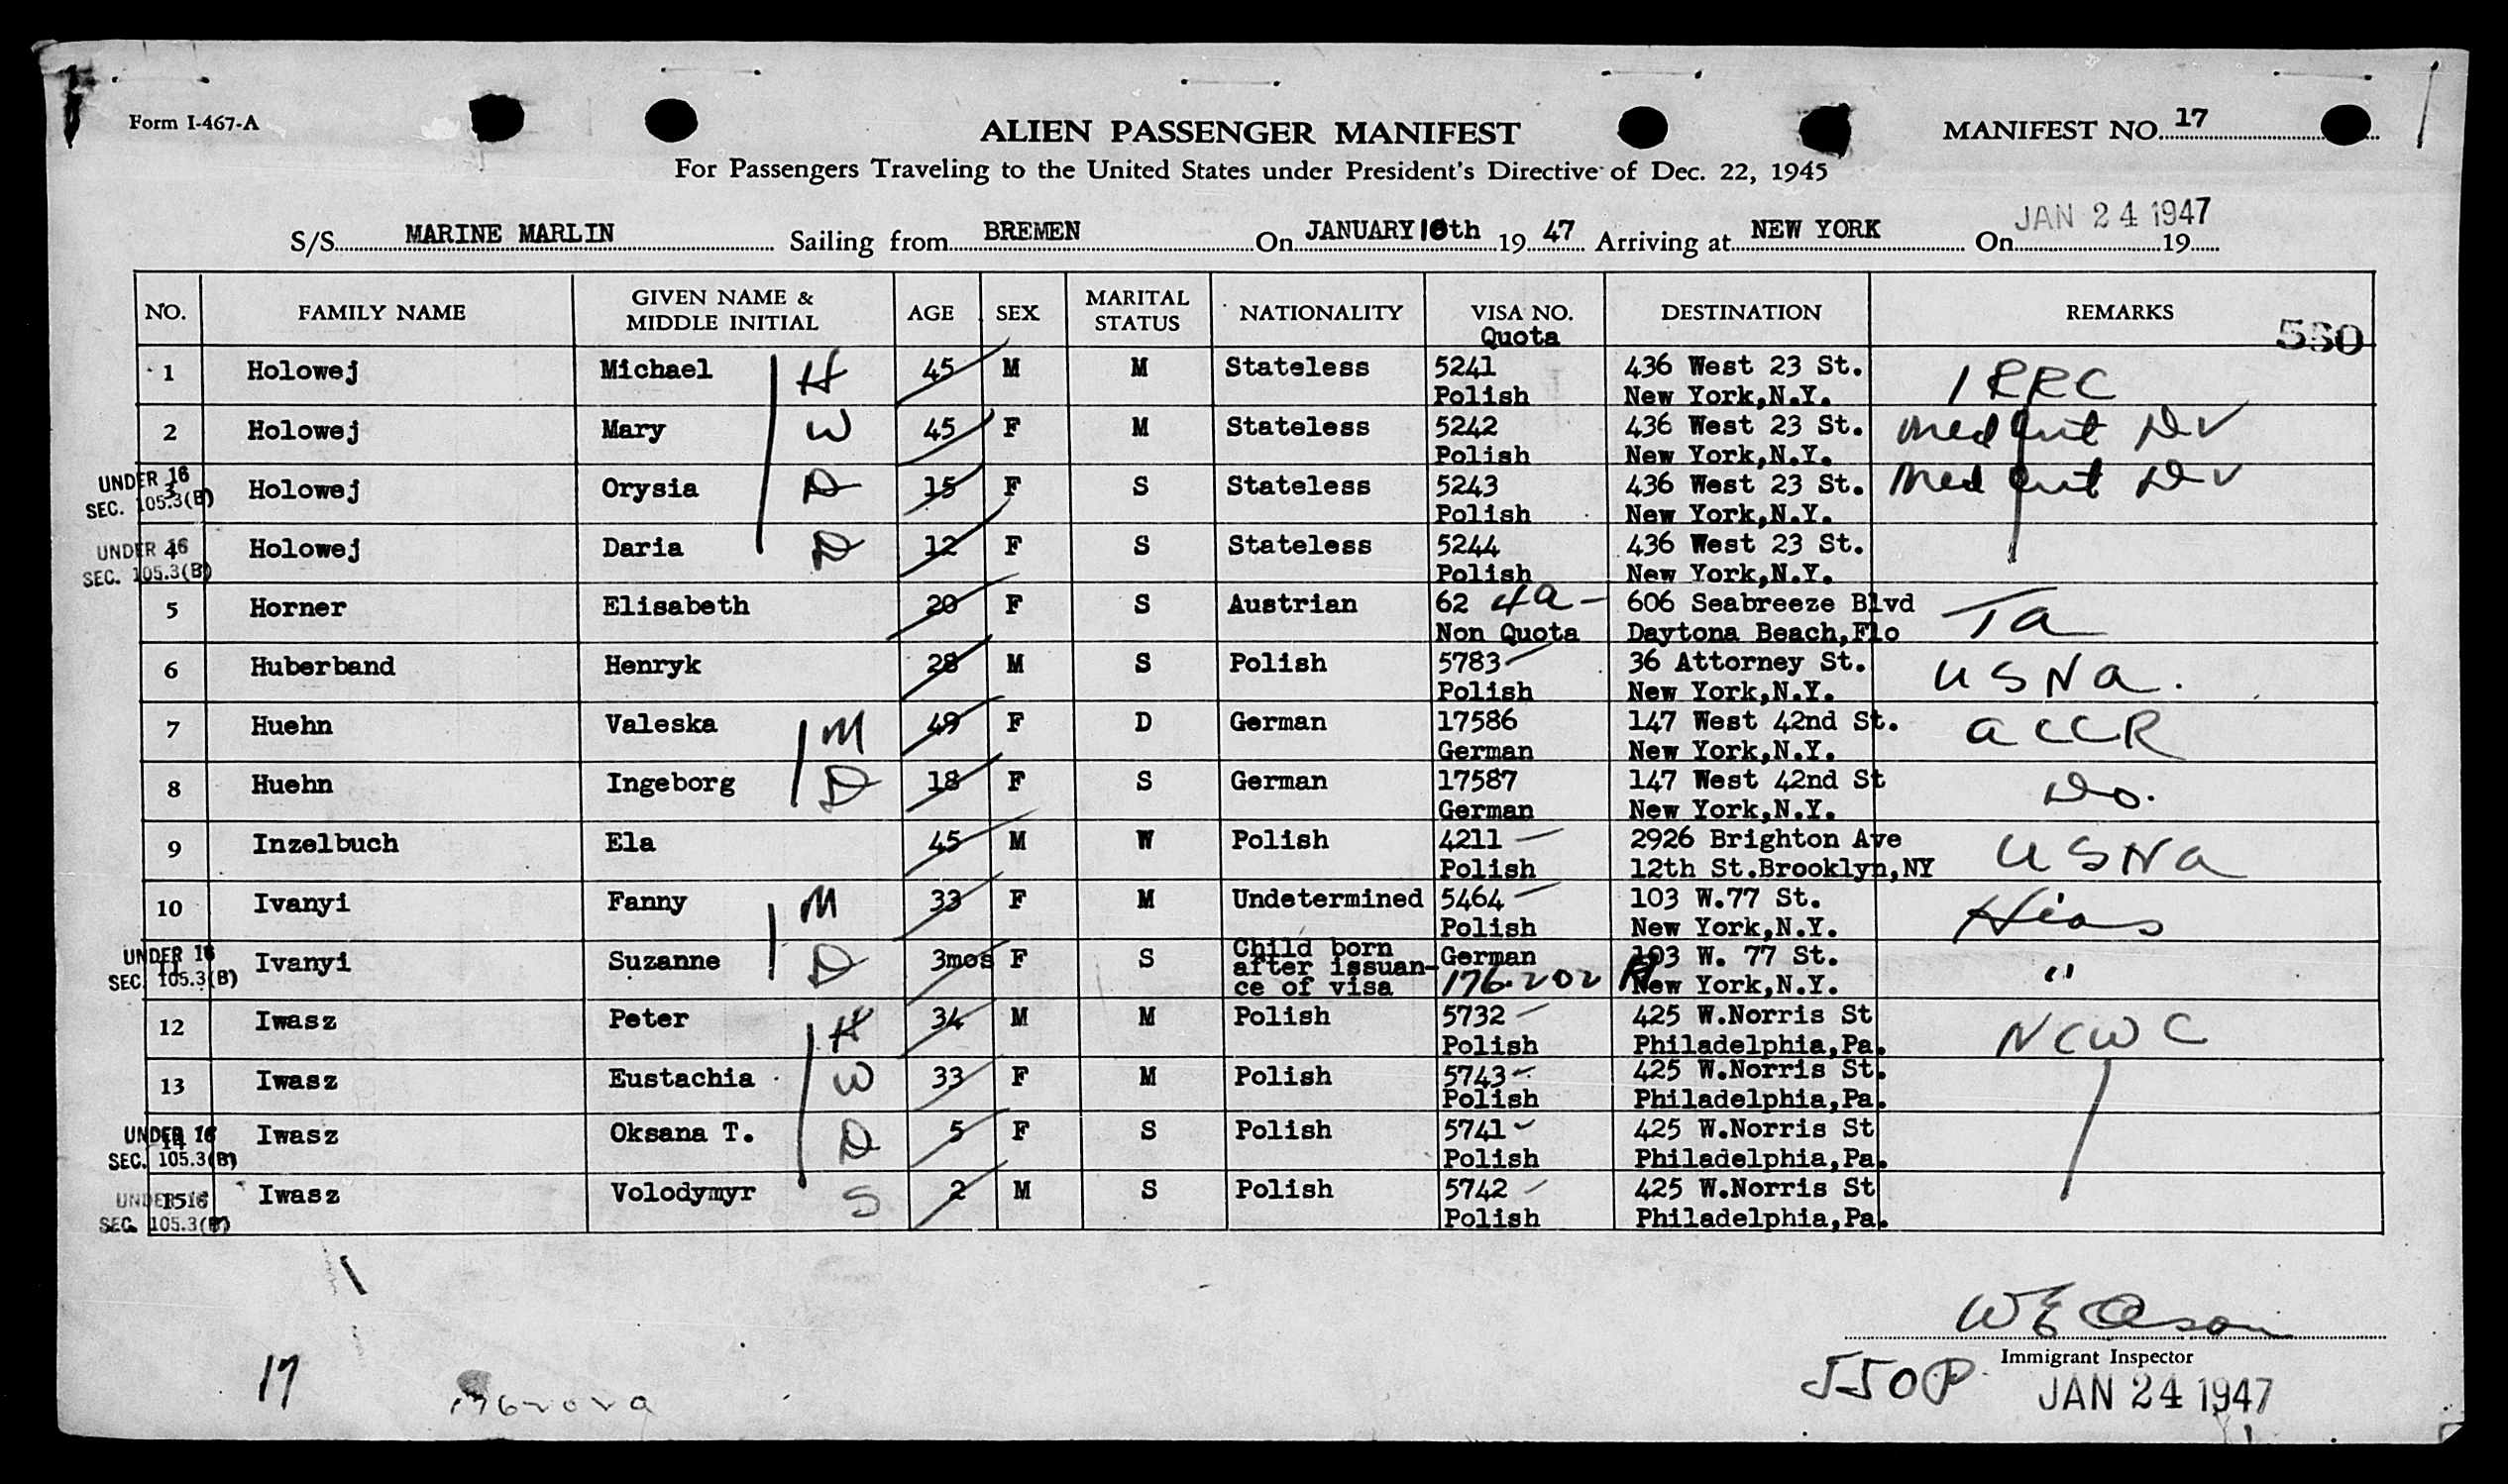 Form I-467-A
ALIEN PASSENGER MANIFEST
MANIFEST NO. 17
For Passengers Traveling to the United States under President's Directive of Dec. 22, 1945
S/S MARINE MARLIN Sailing from BREMEN On JANUARY 10th 19 47 Arriving at NEW YORK On JAN 24 1947 19
NO. FAMILY NAME GIVEN NAME & MIDDLE INITIAL AGE SEX MARITAL STATUS NATIONALITY VISA NO. Quota DESTINATION REMARKS
1 Holowej Michael H 45 M M Stateless 5241 436 West 23 St. IRRC
Polish New York,N.Y.
2 Holowej Mary W 45 F M Stateless 5242 436 West 23 St. Med
Polish New York,N.Y.
UNDER 16
SEC. 105.3(B)
3 Holowej Orysia D 15 F S Stateless 5243 436 West 23 St. Med
Polish New York,N.Y.
UNDER 16
SEC. 105.3(B)
4 Holowej Daria D 12 F S Stateless 5244 436 West 23 St.
Polish New York,N.Y.
5 Horner Elisabeth 20 F S Austrian 62 4a- 606 Seabreeze Blvd Ta
Non Quota Daytona Beach,Flo
6 Huberband Henryk 28 M S Polish 5783 36 Attorney St. USNa.
Polish New York,N.Y.
7 Huehn Valeska M 49 F D German 17586 147 West 42nd St. aCCR
German New York,N.Y.
8 Huehn Ingeborg D 18 F S German 17587 147 West 42nd St Do.
German New York,N.Y.
9 Inzelbuch Ela 45 M W Polish 4211 2926 Brighton Ave USNa
Polish 12th St.Brooklyn,NY
10 Ivanyi Fanny M 33 F M Undetermined 5464 103 W.77 St. Hias
Polish New York,N.Y.
UNDER 16
SEC. 105.3(B)
11 Ivanyi Suzanne D 3mos F S Child born after issuan-ce of visa German 103 W. 77 St. "
176.202 New York,N.Y.
12 Iwasz Peter H 34 M M Polish 5732 425 W.Norris St NCWC
Polish Philadelphia,Pa.
13 Iwasz Eustachia W 33 F M Polish 5743 425 W.Norris St.
Polish Philadelphia,Pa.
UNDER 16
SEC. 105.3(B)
14 Iwasz Oksana T. D 5 F S Polish 5741 425 W.Norris St
Polish Philadelphia,Pa.
UNDER 16
SEC. 105.3(B)
15 Iwasz Volodymyr S 2 M S Polish 5742 425 W.Norris St
Polish Philadelphia,Pa.
Immigrant Inspector
JAN 24 1947
17